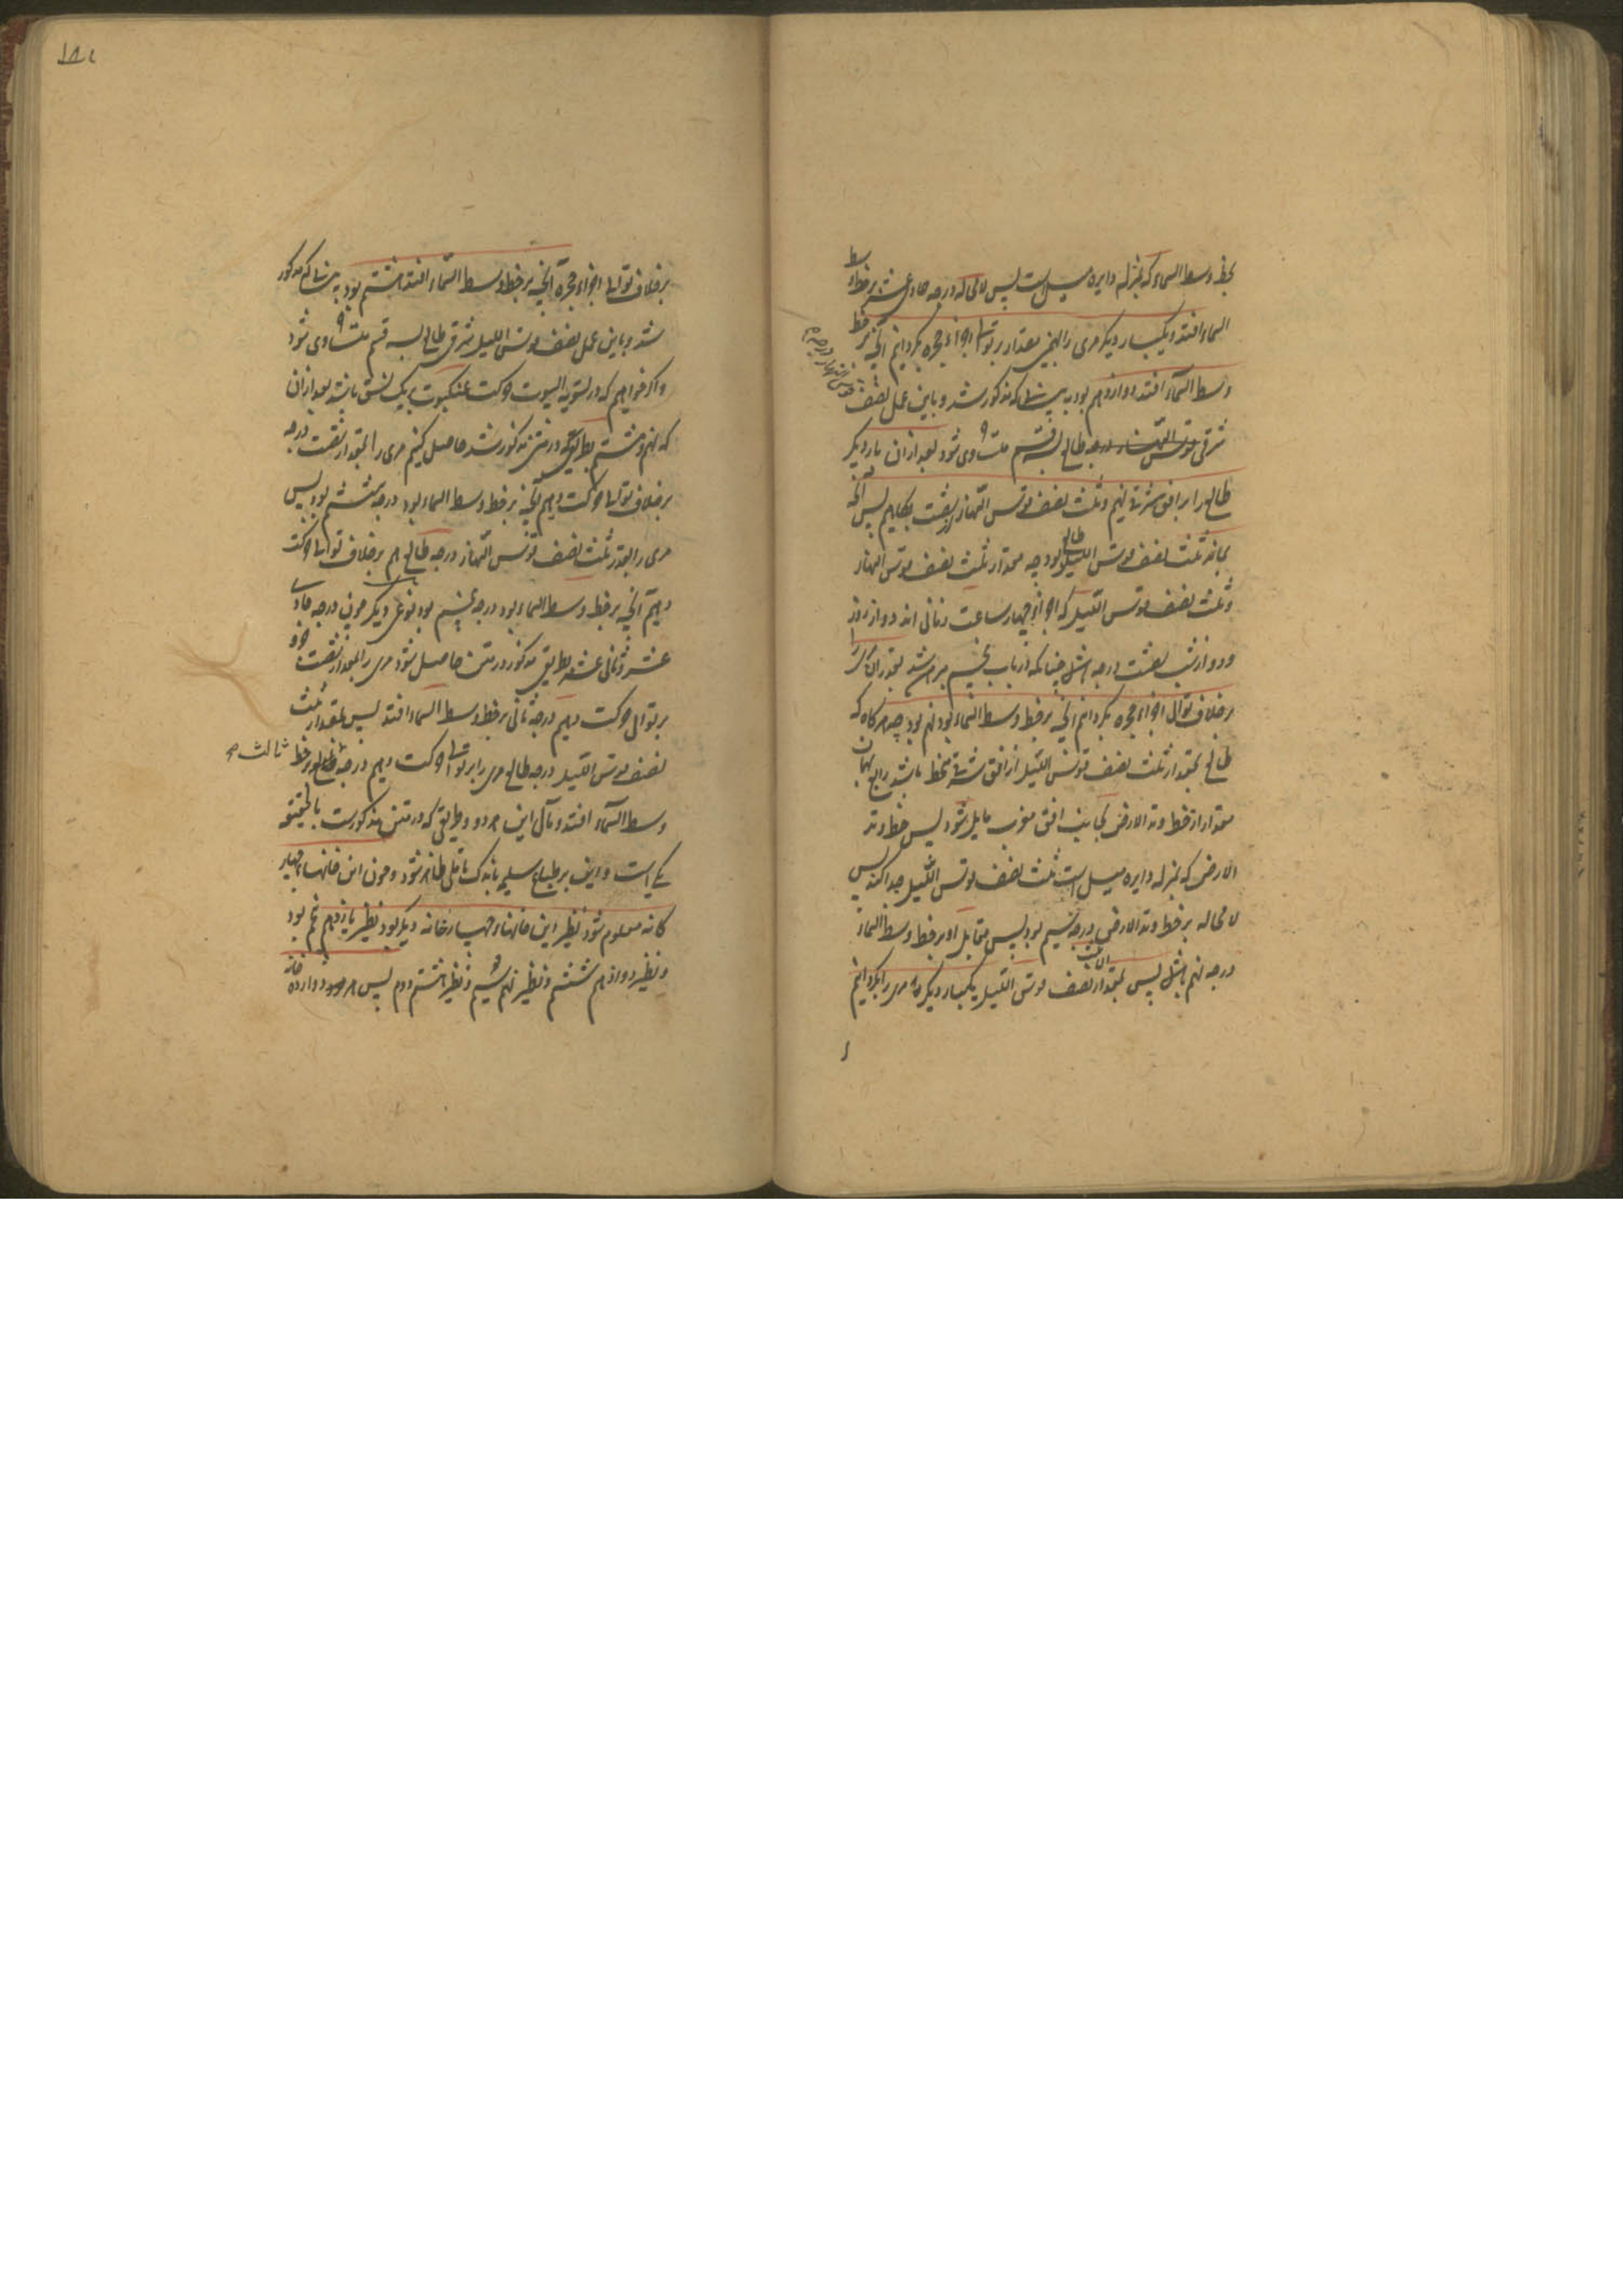 بخط وسط السماء که بمنزله دایره میل است پس لامحاله درجه حادی عشر بر خط وسط
السماء افتد و یکبار دیگر مری را بهمین مقدار بر توالی اجزاء حجره بگردانیم آنچه بر خط
وسط السماء افتد دوازدهم بود به بیانی که مذکور شد و باین عمل نصف
قوس النهار درجه
شرقی قوس النهار درجه طالع بسه قسم متساوی شود بعد ازان بار دیگر
طالع را بر افق شرقی نهیم و ثلث نصف قوس النهار از شصت بکاهیم پس آنچه
بماند ثلث نصف قوس اللیل طالع بود چه مقدار ثلث نصف قوس النهار
و ثلث نصف قوس اللیل که اجزاء چهار ساعت زمانی اند دو از روز
و دو از شب شصت درجه باشد چنانکه در باب پنجم مبرهن شد بقدر آن مری را
بر خلاف توالی اجزاء حجره بگردانیم آنچه بر خط وسط السماء بود نهم بود چه هرگاه که
طالع بمقدار ثلث نصف قوس اللیل از افق شرقی منحط باشد رابع بهمان
مقدار از خط وتد الارض بجانب افق مغرب مایل شود پس خط وتد
الارض که بمنزله دایره میل است ثلث نصف قوس اللیل جدا کند پس
لامحاله بر خط وتد الارض درجه سیم بود پس مقابل او بر خط وسط السماء
درجه نهم باشد پس بمقدار ثلث نصف قوس اللیل یکبار دیگر مری را بگردانیم
بر خلاف توالی اجزاء حجره آنچه بر خط وسط السماء افتد هشتم بود به بیانی که مذکور
شد و باین عمل نصف قوس اللیل شرقی طالع بسه قسم متساوی شود
و اگر خواهیم که در تسویه البیوت حرکت عنکبوت بیک نسق باشد بعد ازان
که نهم و هشتم بطریقی که در متن مذکور شد حاصل کنیم مری را بمقدار شصت درجه
بر خلاف توالی حرکت دهیم آنچه بر خط وسط السماء بود درجه ششم بود پس
مری را بقدر ثلث نصف قوس النهار درجه طالع هم بر خلاف توالی حرکت
دهیم آنچه بر خط وسط السماء بود درجه پنجم بود بنوعی دیگر چون درجه حادی
عشر و ثانی عشر بطریق مذکور در متن حاصل شود مری را بمقدار شصت جزو
بر توالی حرکت دهیم درجه ثانی بر خط وسط السماء افتد پس بمقدار ثلث
نصف قوس اللیل درجه طالع مری را بر توالی حرکت دهیم درجه ثالث بر خط
ثالث صح
وسط السماء افتد و مآل این هر دو و طریقی که در متن مذکورست بالحقیقه
یکی است و این بر طباع سلیم باندک تاملی ظاهر شود و چون این خانها چهار
گانه معلوم شود نظیر این خانها چهار خانه دیگر بود نظیر یازدهم پنجم بود
و نظیر دوازدهم ششم و نظیر نهم سیم و نظیر هشتم دوم پس هر دوازده خانه